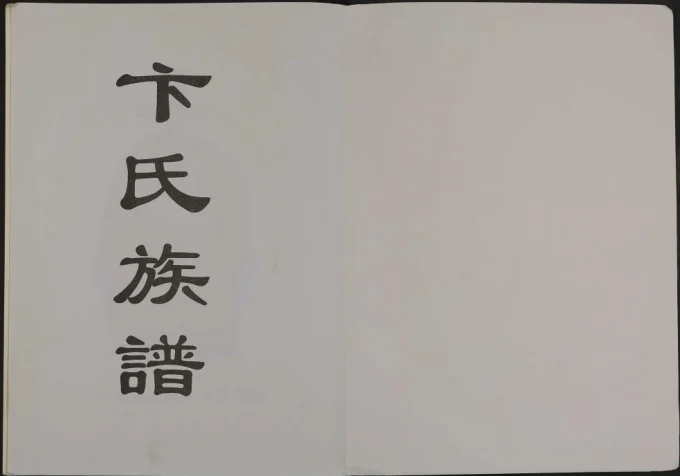 卞氏族譜